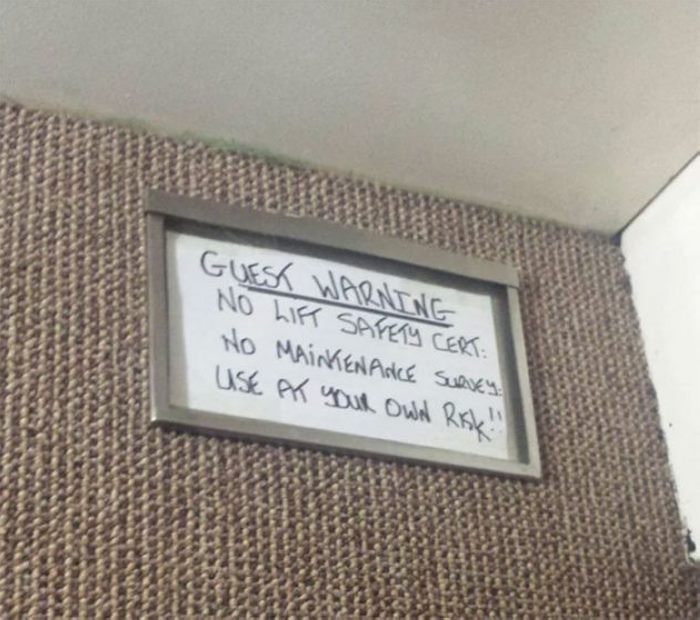 GUEST WARNING
NO LIFT SAFETY CERT.
NO MAINTENANCE SURVEY.
USE AT YOUR OWN RISK!!